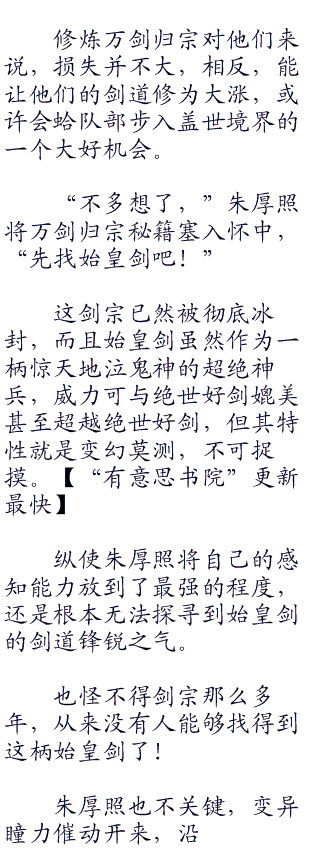 修炼万剑归宗对他们来
说，损失并不大，相反，能
让他们的剑道修为大涨，或
许会蛤队部步入盖世境界的
一个大好机会。
“不多想了，”朱厚照
将万剑归宗秘籍塞入怀中，
“先找始皇剑吧！”
这剑宗已然被彻底冰
封，而且始皇剑虽然作为一
柄惊天地泣鬼神的超绝神
兵，威力可与绝世好剑媲美
甚至超越绝世好剑，但其特
性就是变幻莫测，不可捉
摸。【“有意思书院”更新
最快】
纵使朱厚照将自己的感
知能力放到了最强的程度，
还是根本无法探寻到始皇剑
的剑道锋锐之气。
也怪不得剑宗那么多
年，从来没有人能够找得到
这柄始皇剑了！
朱厚照也不关键，变异
瞳力催动开来，沿